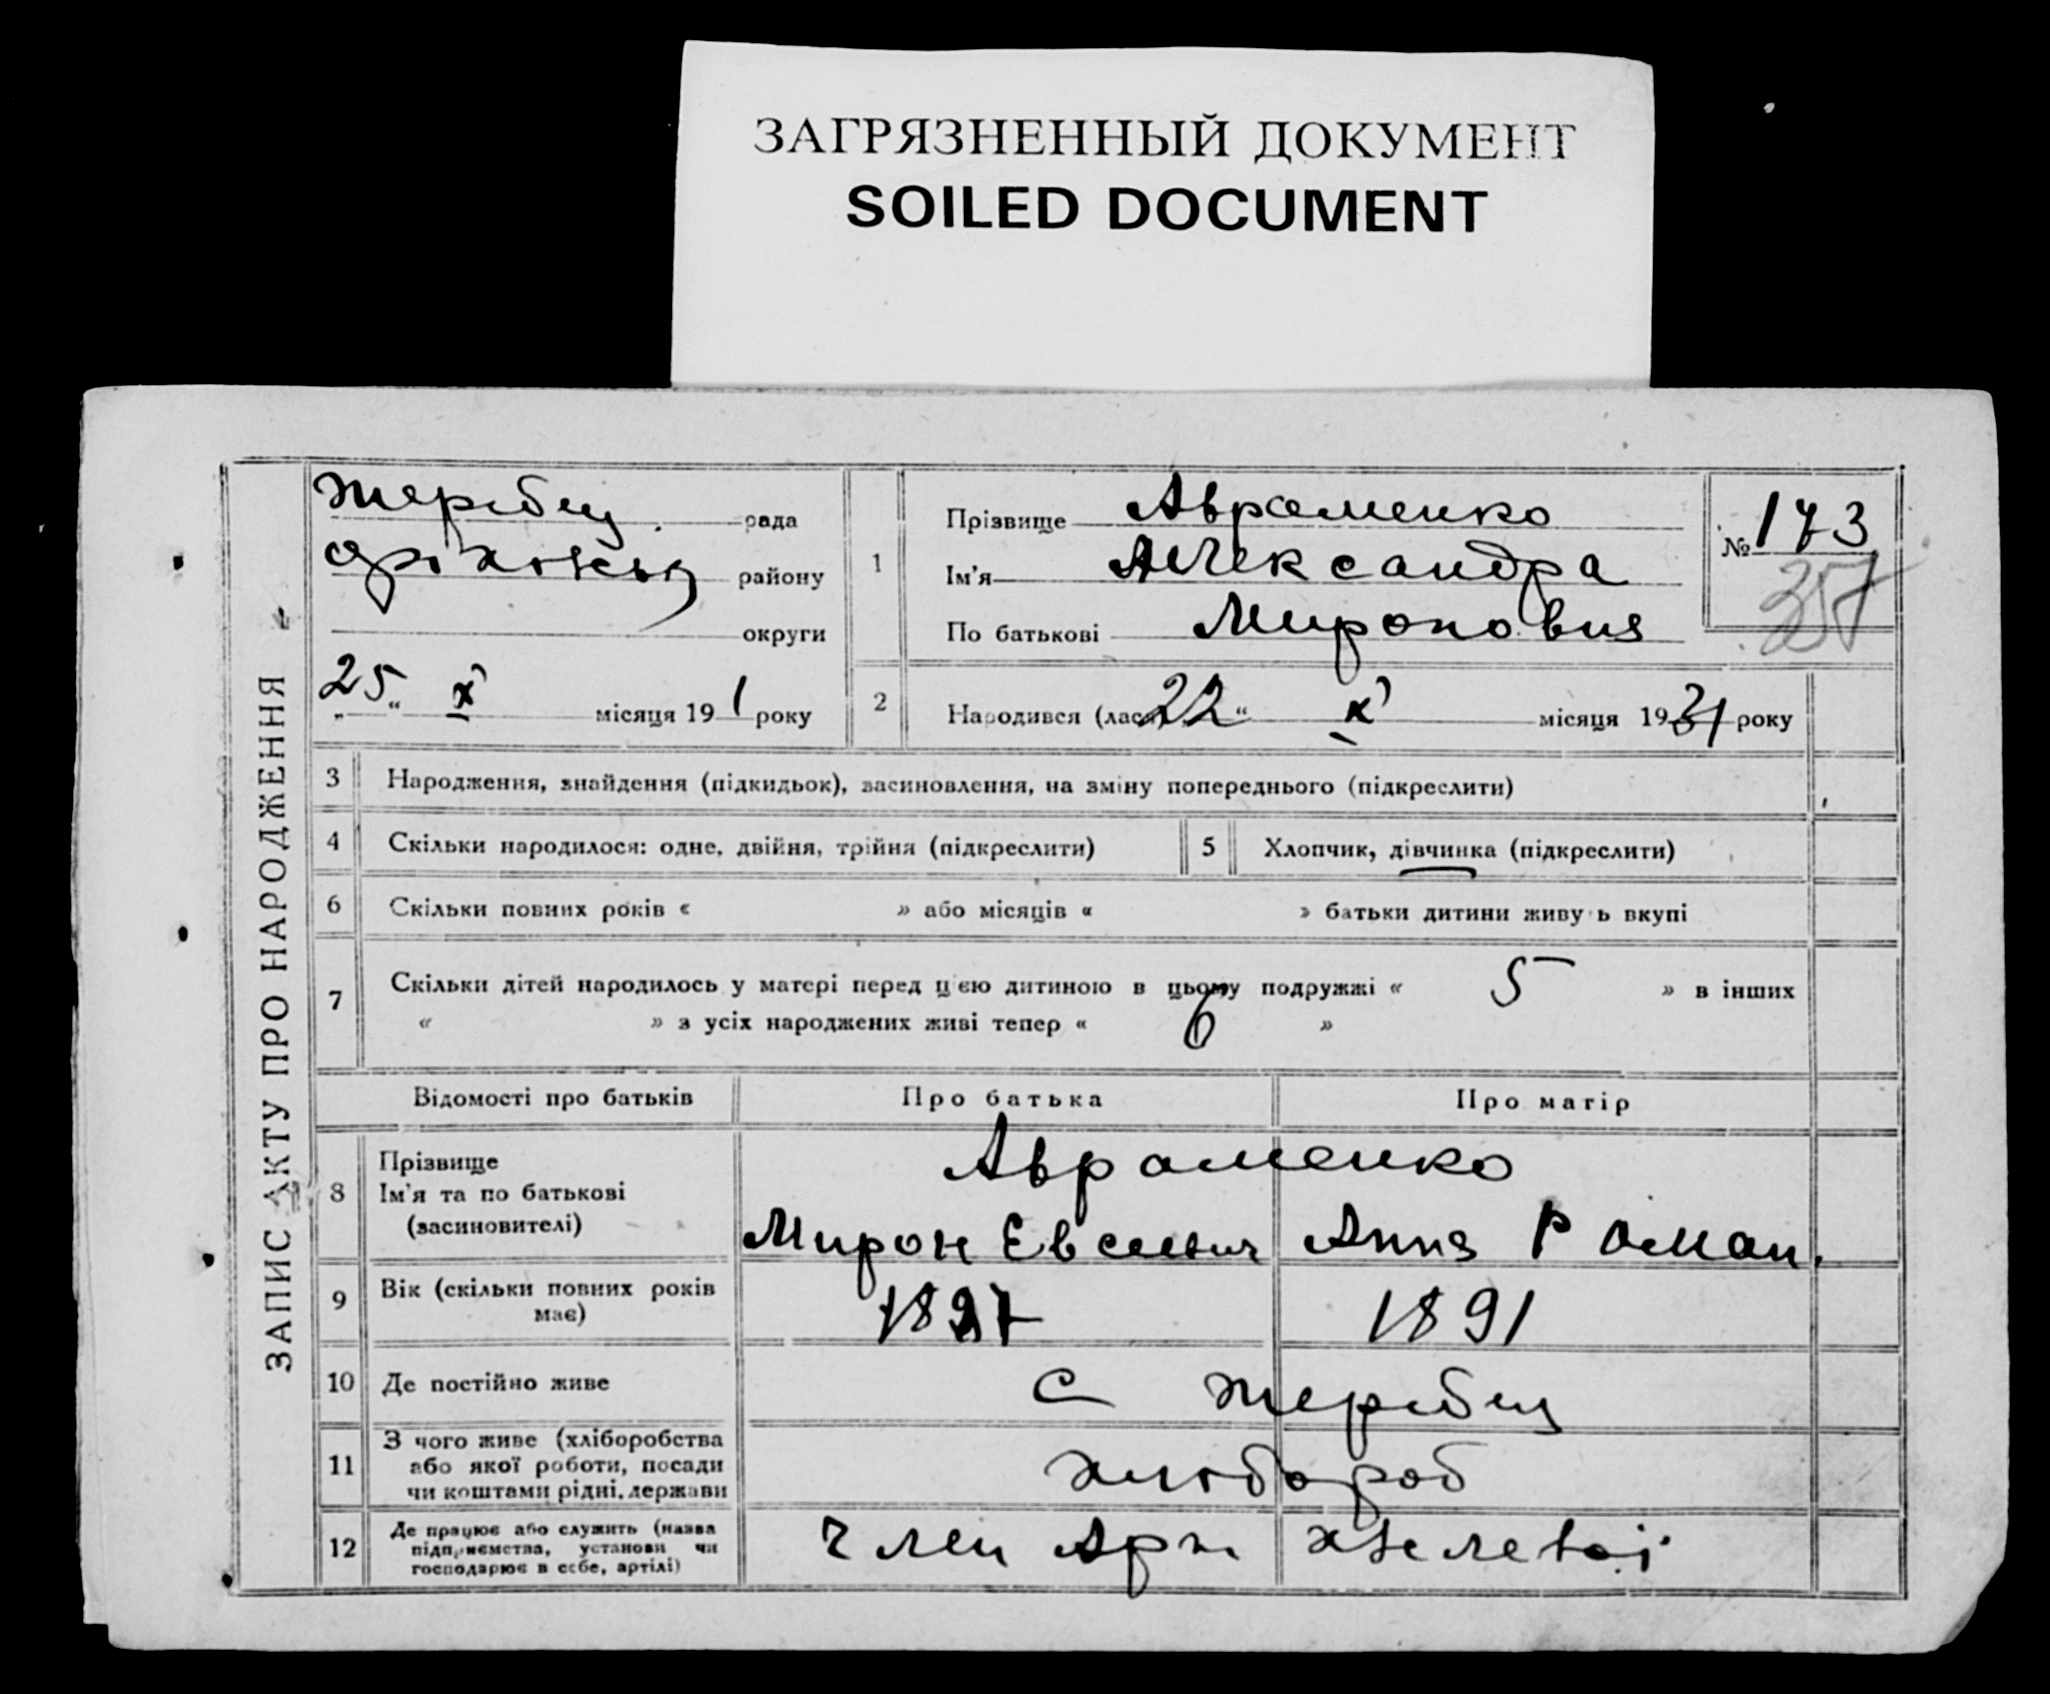 ЗАГРЯЗНЕННЫЙ ДОКУМЕНТ
SOILED DOCUMENT
ЗАПИС АКТУ ПРО НАРОДЖЕННЯ
Жеребец рада
району
округи
„25“ X місяця 19 1 року
1
Прізвище Авраменко
Ім'я Александра
По батькові Мироновна
№ 173
357
2 Народився (лася) 22“ X місяця 1931 року
3 Народження, знайдення (підкидьок), засиновлення, на зміну попереднього (підкреслити)
4 Скільки народилося: одне, двійня, трійня (підкреслити)
5 Хлопчик, дівчинка (підкреслити)
6 Скільки повних років « » або місяців « » батьки дитини живу ь вкупі
7 Скільки дітей народилось у матері перед цією дитиною в цьому подружжі « 5 » в інших
« » з усіх народжених живі тепер « 6 »
Відомості про батьків Про батька Про матір
8 Прізвище
Ім'я та по батькові
(засиновителі)
Авраменко
Мирон Евсеевич Анна Роман.
9 Вік (скільки повних років
має)
1891
10 Де постійно живе с Жеребец
11 З чого живе (хліборобства
або якої роботи, посади
чи коштами рідні, держави
хлібороб
12 Де працює або служить (назва
підприємства, установи чи
господарює в себе, артілі)
член Арт